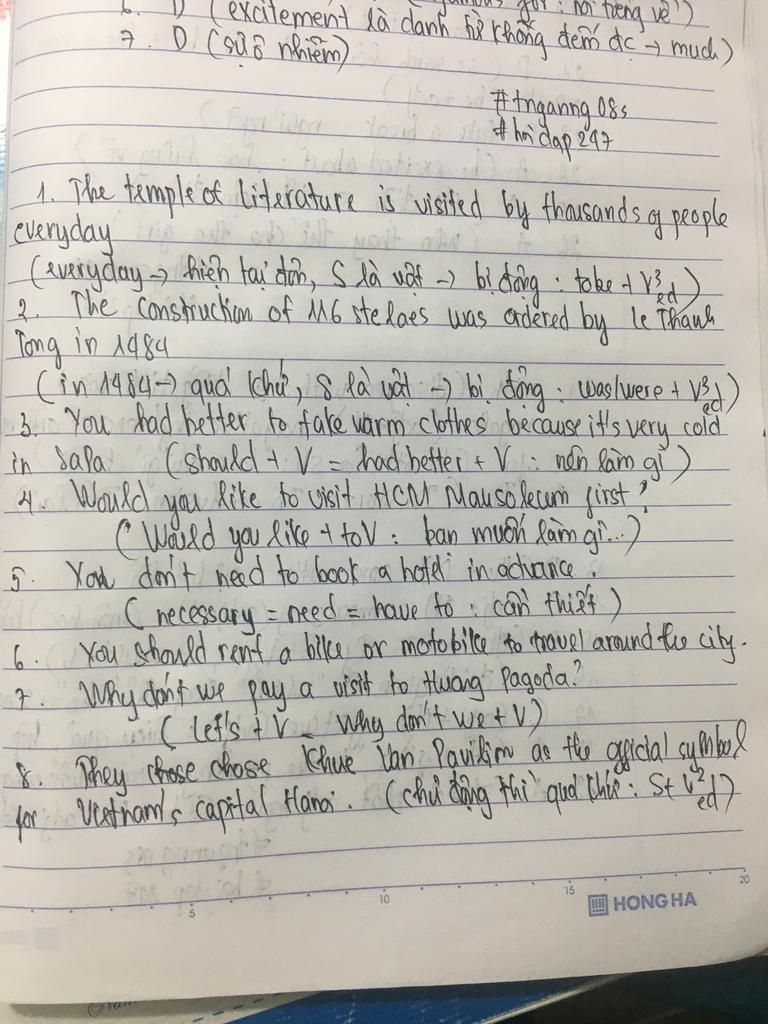 6. D (excitement là danh từ không đếm đc → much)
7. D (sự ô nhiễm)
#tnganng08s
#hoidap247
1. The temple of literature is visited by thousands of people
everyday
(everyday → hiện tại đơn, S là vật → bị động : tobe + V3 ed)
2. The construction of 116 stelaes was ordered by le Thanh
Tong in 1484
(in 1484 → quá khứ, S là vật → bị động : was/were + V3 ed)
3. You had better to take warm clothes because it's very cold
in Sapa (should + V = had better + V : nên làm gì)
4. Would you like to visit HCM Mausoleum first?
(Would you like + to V : bạn muốn làm gì...)
5. You don't need to book a hotel in advance.
(necessary = need = have to : cần thiết)
6. You should rent a bike or motobike to travel around the city.
7. Why don't we pay a visit to Huong Pagoda?
(let's + V = Why don't we + V)
8. They chose Khue Van Pavilion as the official symbol
for Vietnam's capital Hanoi. (chủ động thì quá khứ : S + V2 ed)
5 10 15 20
HH HONG HA